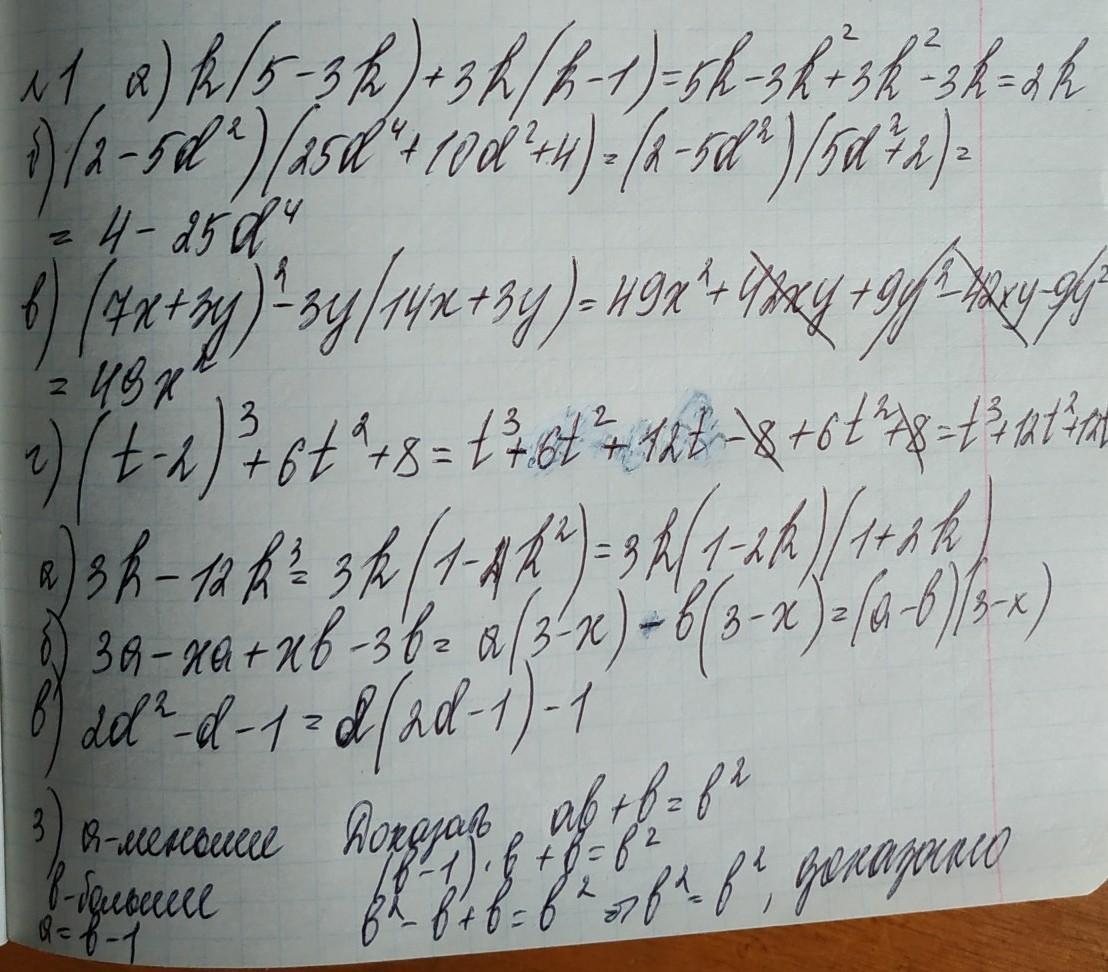 №1 а) k(5-3k)+3k(k-1)=5k-3k²+3k²-3k=2k
б) (2-5d²)(25d⁴+10d²+4)=(2-5d²)(5d²+2)=
= 4-25d⁴
в) (7x+3y)²-3y(14x+3y)=49x²+42xy+9y²-42xy-9y²
= 49x²
г) (t-2)³+6t²+8=t³+6t²+12t-8+6t²+8=t³+12t²+12t
а) 3k-12k³=3k(1-4k²)=3k(1-2k)(1+2k)
б) 3a-xa+xb-3b=a(3-x)-b(3-x)=(a-b)(3-x)
в) 2d²-d-1=d(2d-1)-1
3) a-меньшее Доказать ab+b=b²
b-большее (b-1)·b+b=b²
a=b-1 b²-b+b=b² ⇒ b²=b², доказано